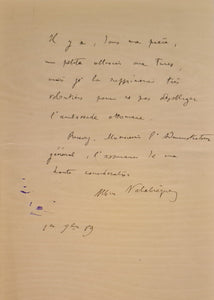 Il y a, dans ma pièce,
une petite allusion aux Turcs,
mais je la supprimerai très
volontiers pour ne pas désobliger
l'ambassade ottomane.
Monsieur l'Administrateur
général, l'assurance de ma
haute considération